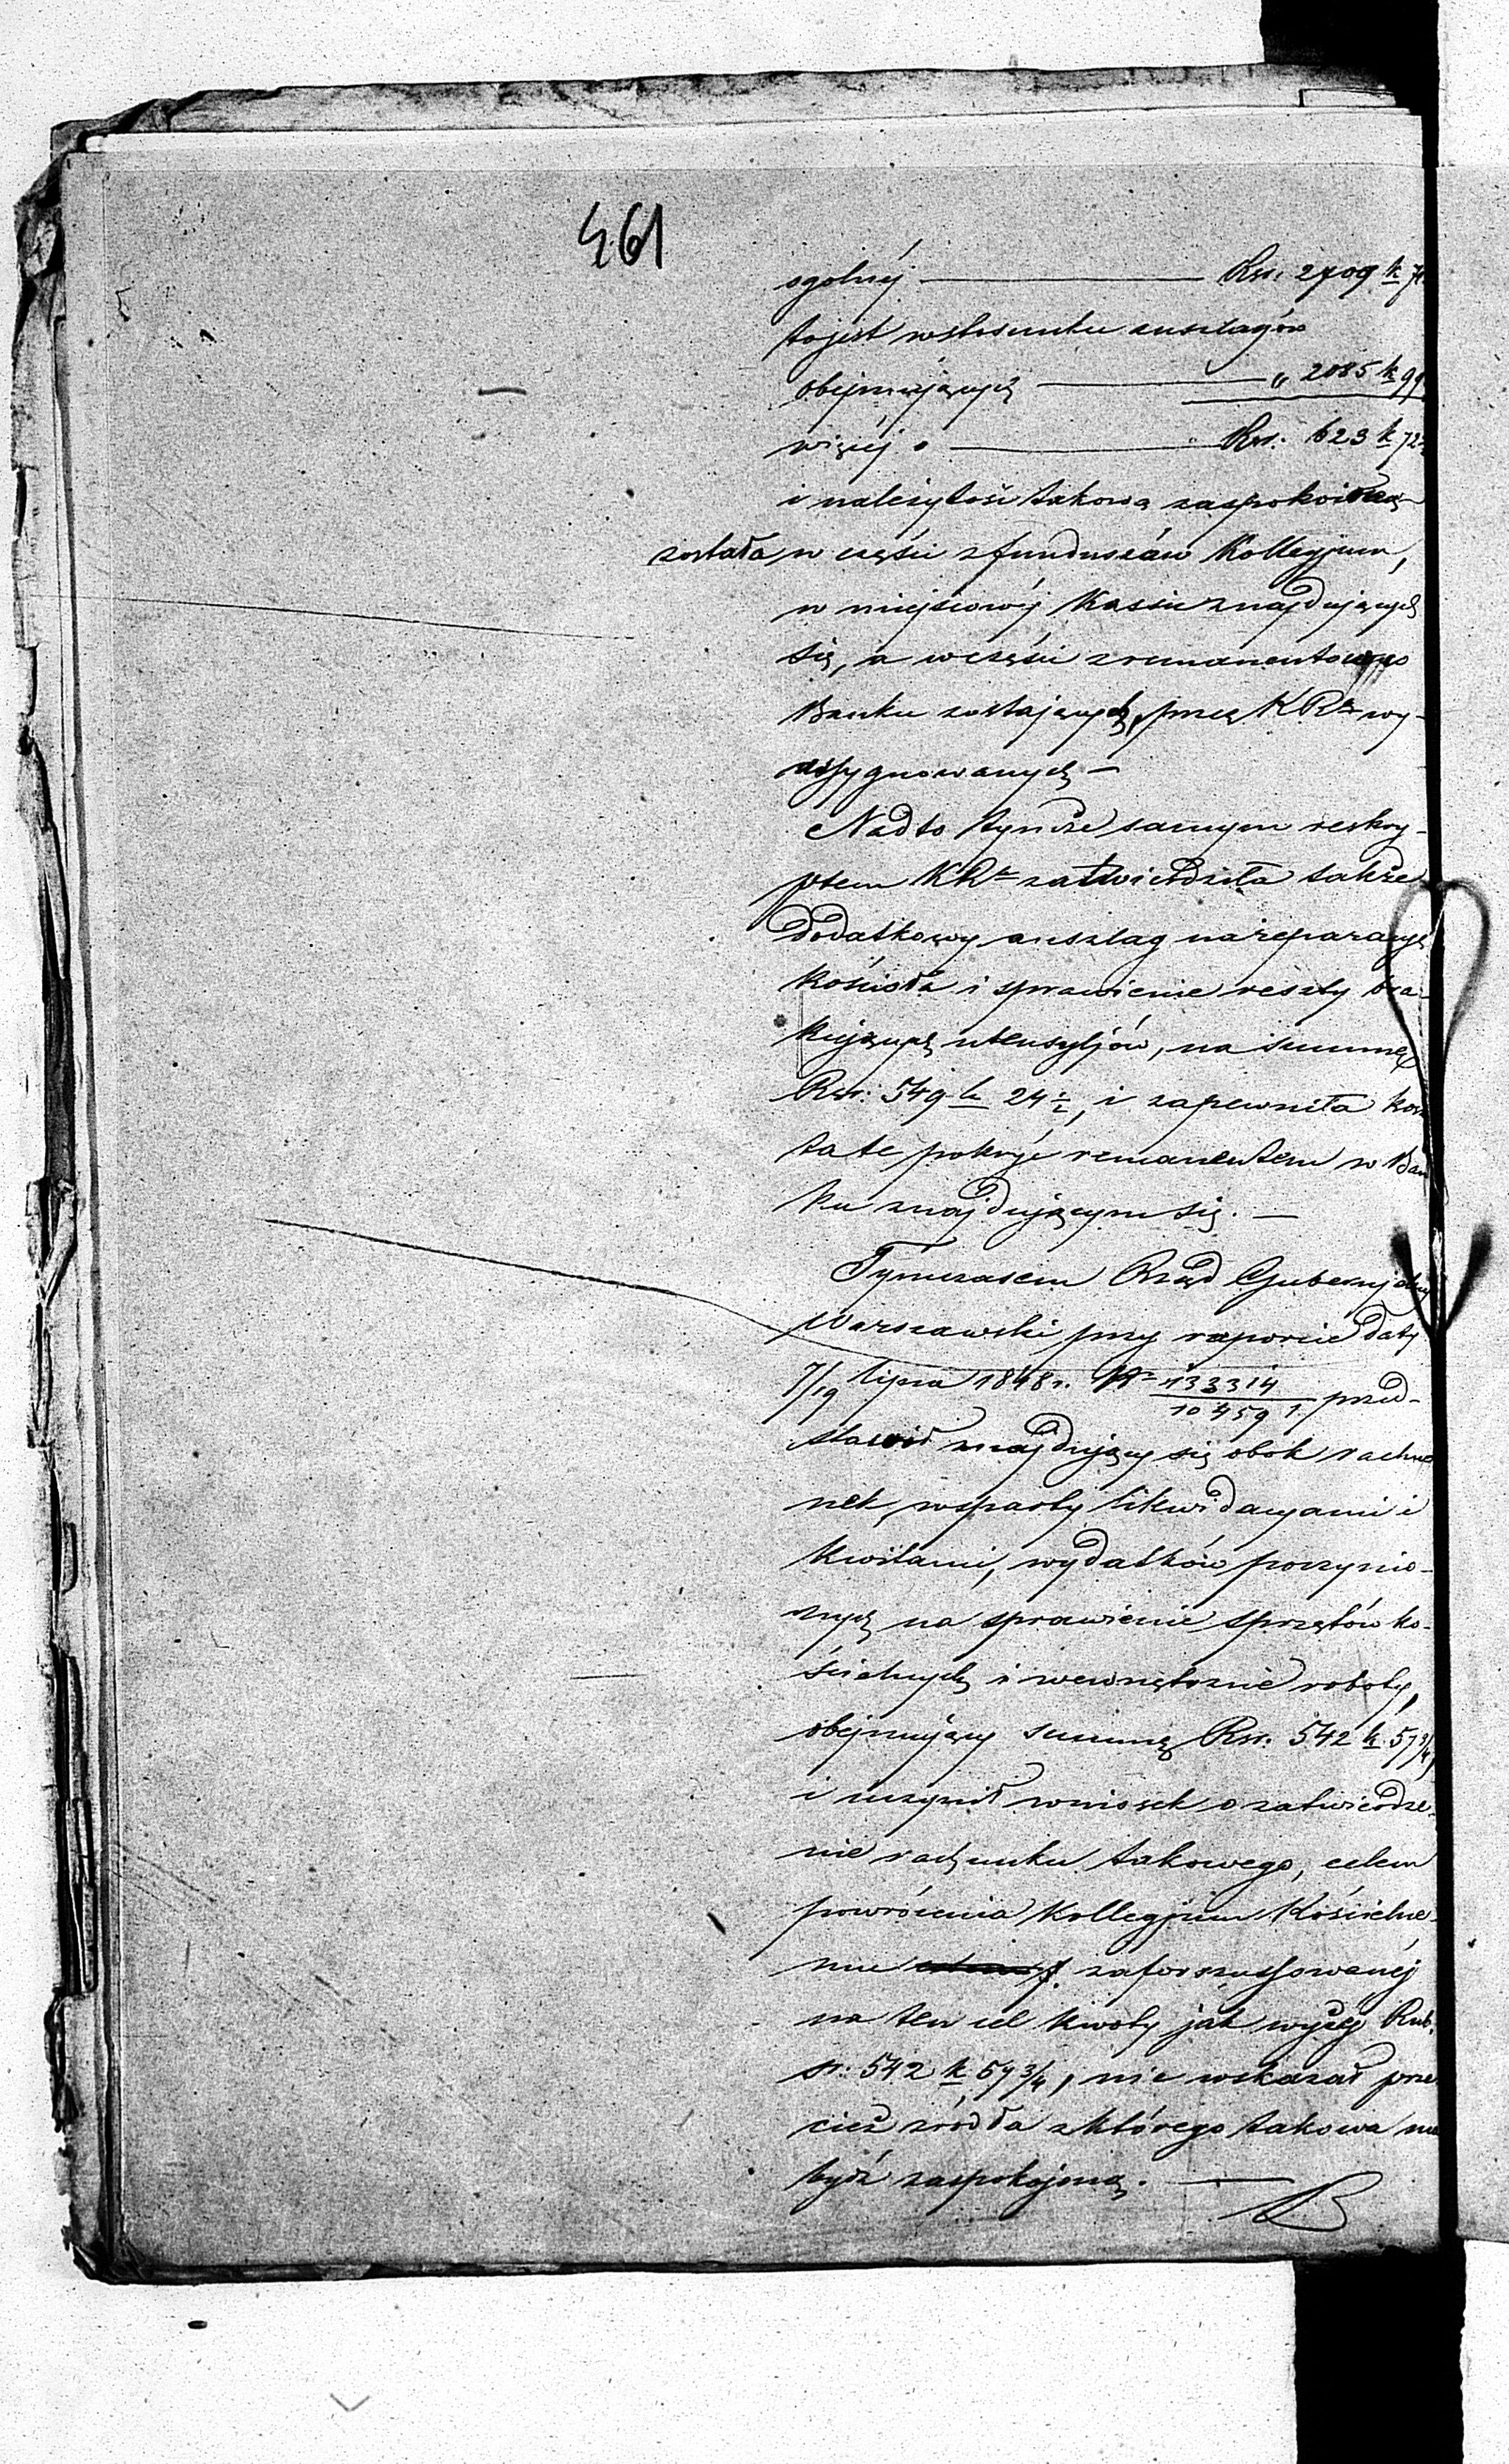 461
ogolnéj — Rsr. 2709 k 7
to jest w stosunku anszlagów
obejmujących — „ 2085 k 99
więcéj o — Rsr. 623 k 72
i należytość takowa zaspokoiona
została w części z funduszów Kollegjum,
w miejscowéj Kassie znajdujących
się, a w części z remanentów w
Banku zostających, przez KRz wy-
assygnowanych —
Nadto tymże samym reskry-
ptem KRz zatwierdziła także
dodatkowy anszlag na reparacyę
kościoła i sprawienie reszty bra-
kujących utensyljów, na summę
Rsr. 549 k 24 ½, i zapewniła kosz
ta te pokryć remanentem w Ban
ku znajdującym się. —
Tymczasem Rząd Gubernjalny
Warszawski przy raporcie daty
7/19 lipca 1848 r. Nr 133314/104591 przed-
stawił znajdujący się obok rachu
nek, wsparty likwidacyami i
kwitami, wydatków poczynio-
nych na sprawienie sprzętów ko-
ścielnych i wewnętrzne roboty,
obejmujący summę Rsr. 542 k 57 3/4,
i uczynił wniosek o zatwierdze-
nie rachunku takowego, celem
powrócenia Kollegjum Kościelne-
mu zaforszussowanéj
na ten cel kwoty jak wyżéj Rub.
sr. 542 k 57 3/4, nie wskazał prze
cież źródła z którego takowa ma
bydź zaspokojoną. —